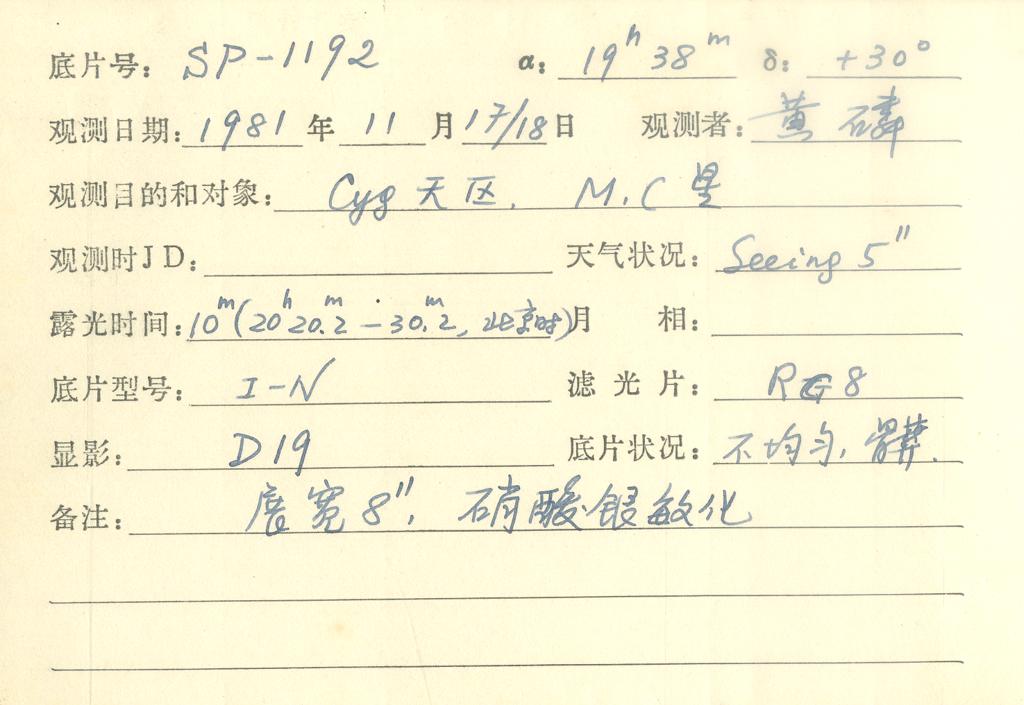 底片号: SP-1192 α: 19ʰ 38ᵐ δ: +30°
观测日期: 1981 年 11 月 17/18 日 观测者: 黄磷
观测目的和对象: Cyg 天区. M.C 星
观测时JD: 天气状况: Seeing 5"
露光时间: 10ᵐ(20ʰ20ᵐ.2-30ᵐ.2, 北京时) 月 相:
底片型号: I-N 滤光片: RG8
显影: D19 底片状况: 不均匀, 脏.
备注: 展宽8", 硝酸银敏化